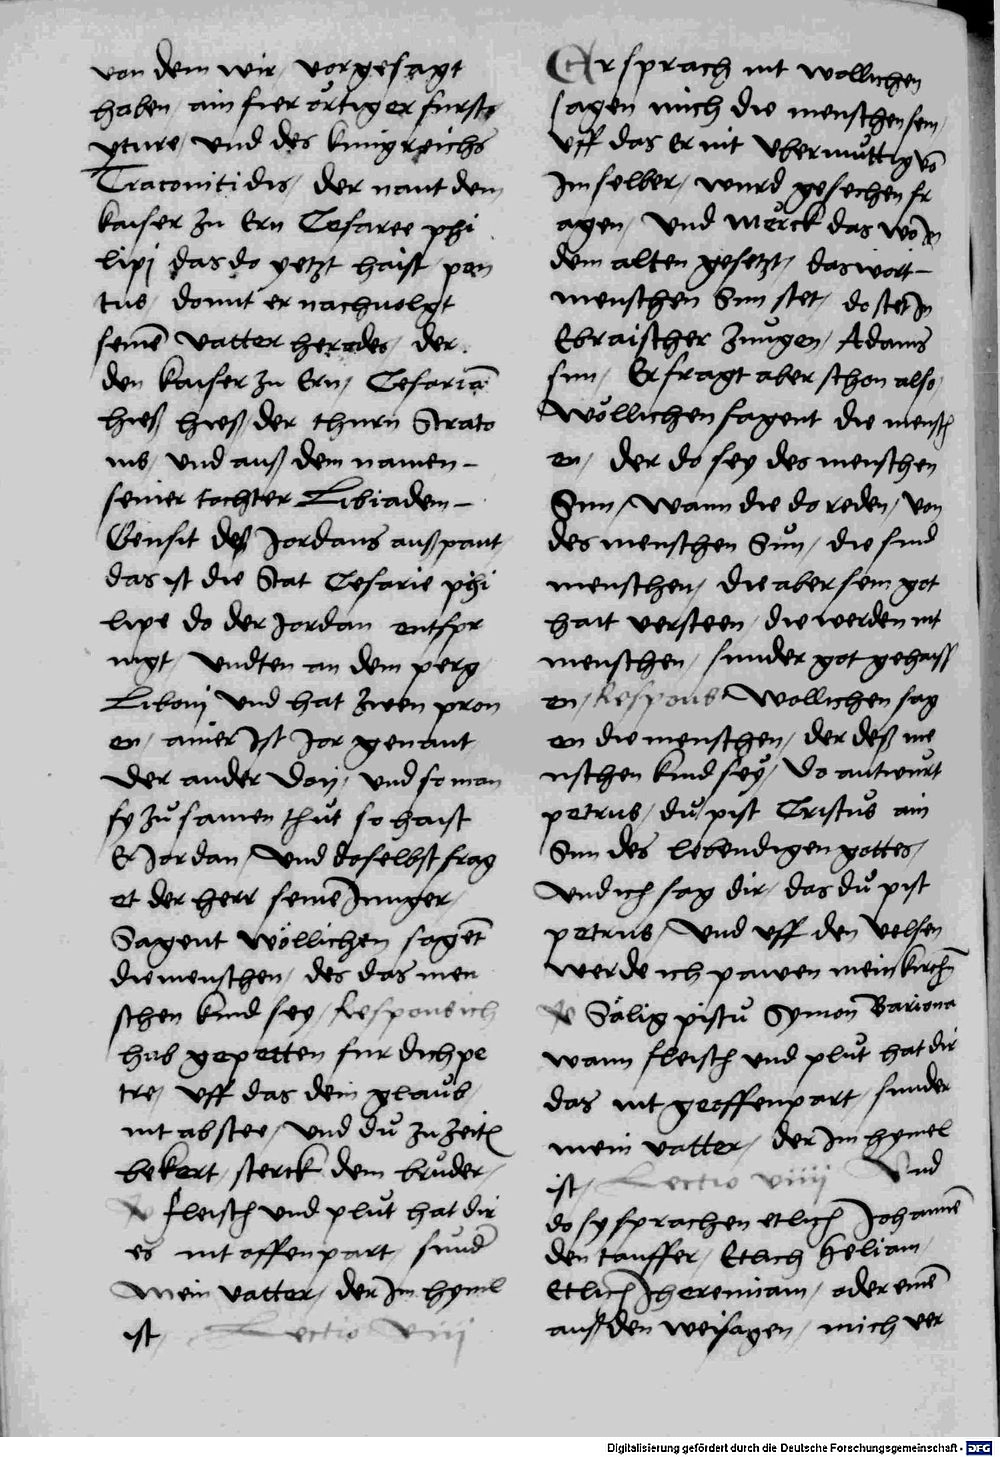 von dem wir, vorgesagt
haben, ain fier örtiger furste
yture, vnd des kunigreichs
Traconitidis, der nant dem
kaiser zu Ern Cesaree phi
lipi das do yetzt haist, pen
tus, domit er nachuolgt
seinē vatter herodes, der
den kaiser zu Ern, Cesariā
hieß hieß, der thurn Strato
nis, vnd auß dem namen -
seiner tochter Libiadem -
Gensit deß Jordans auß pant,
das ist die Stat Cesarie phi
lipe do der Jordan entspr
ingt, vndten an dem perg
Liboni vnd hat zwen pron
en, ainer Ist Jor genant
der ander Dan, vnd so man
sy zů samen thůt so haist
Er Jordan, Vnd doselbst frag
et der herr seine Junger,
Sagent wöllichen sagēt
die menschen, des das men
schen kind sey, Respons ich
hab gepetten fur dich pe
tre, vff das dein glaůb,
nit abstee, vnd dů zu zeitē
bekert, sterck dein brůder,
fleisch vnd plůt hat dir
es nit offenpart, sund
Mein vatter, der Im hyml
ist, Lectio viij
Er sprach nit wollichen
sagen mich die menschen sein,
vff das Er nit vbermůttig vō
Im selber, wurd gesechen fr
agen, vnd mörck das wo In
dem alten gesetzt, das wort -
menschen Sun stet, do stet In
Ebraischer Zungen, Adams
sun, Er fragt aber schon also,
Wöllichen sagent die mensch
en, der do sey des menschen
Sun, Wann die do reden, von
des menschen Sun, die sind
menschen, die aber sein got
hait versteen, die werden nit
menschen, sunder got gehaiss
en, Respons Wollichen sag
en die menschen, der deß me
nschen kind sey, Do antwurt
petrus, du pist Cristus ain
Sun des lebendigen gottes,
Vnd ich sag dir, das dů pist
petrus, Vnd vff den velsen
werde ich pawen mein kirchē
Sälig pistu Symon Bariona
wann fleisch vnd plůt hat dir
das nit geoffenpart, sunder
mein vatter, der Im hymel
ist, Lectio viiij Vnd
do sy sprachen etlich Johannē
den tauffer, Etlich Heliam,
Etlich Jheremiam, oder einē
auß den weisagen, mich ver
Digitalisierung gefördert durch die Deutsche Forschungsgemeinschaft - DFG